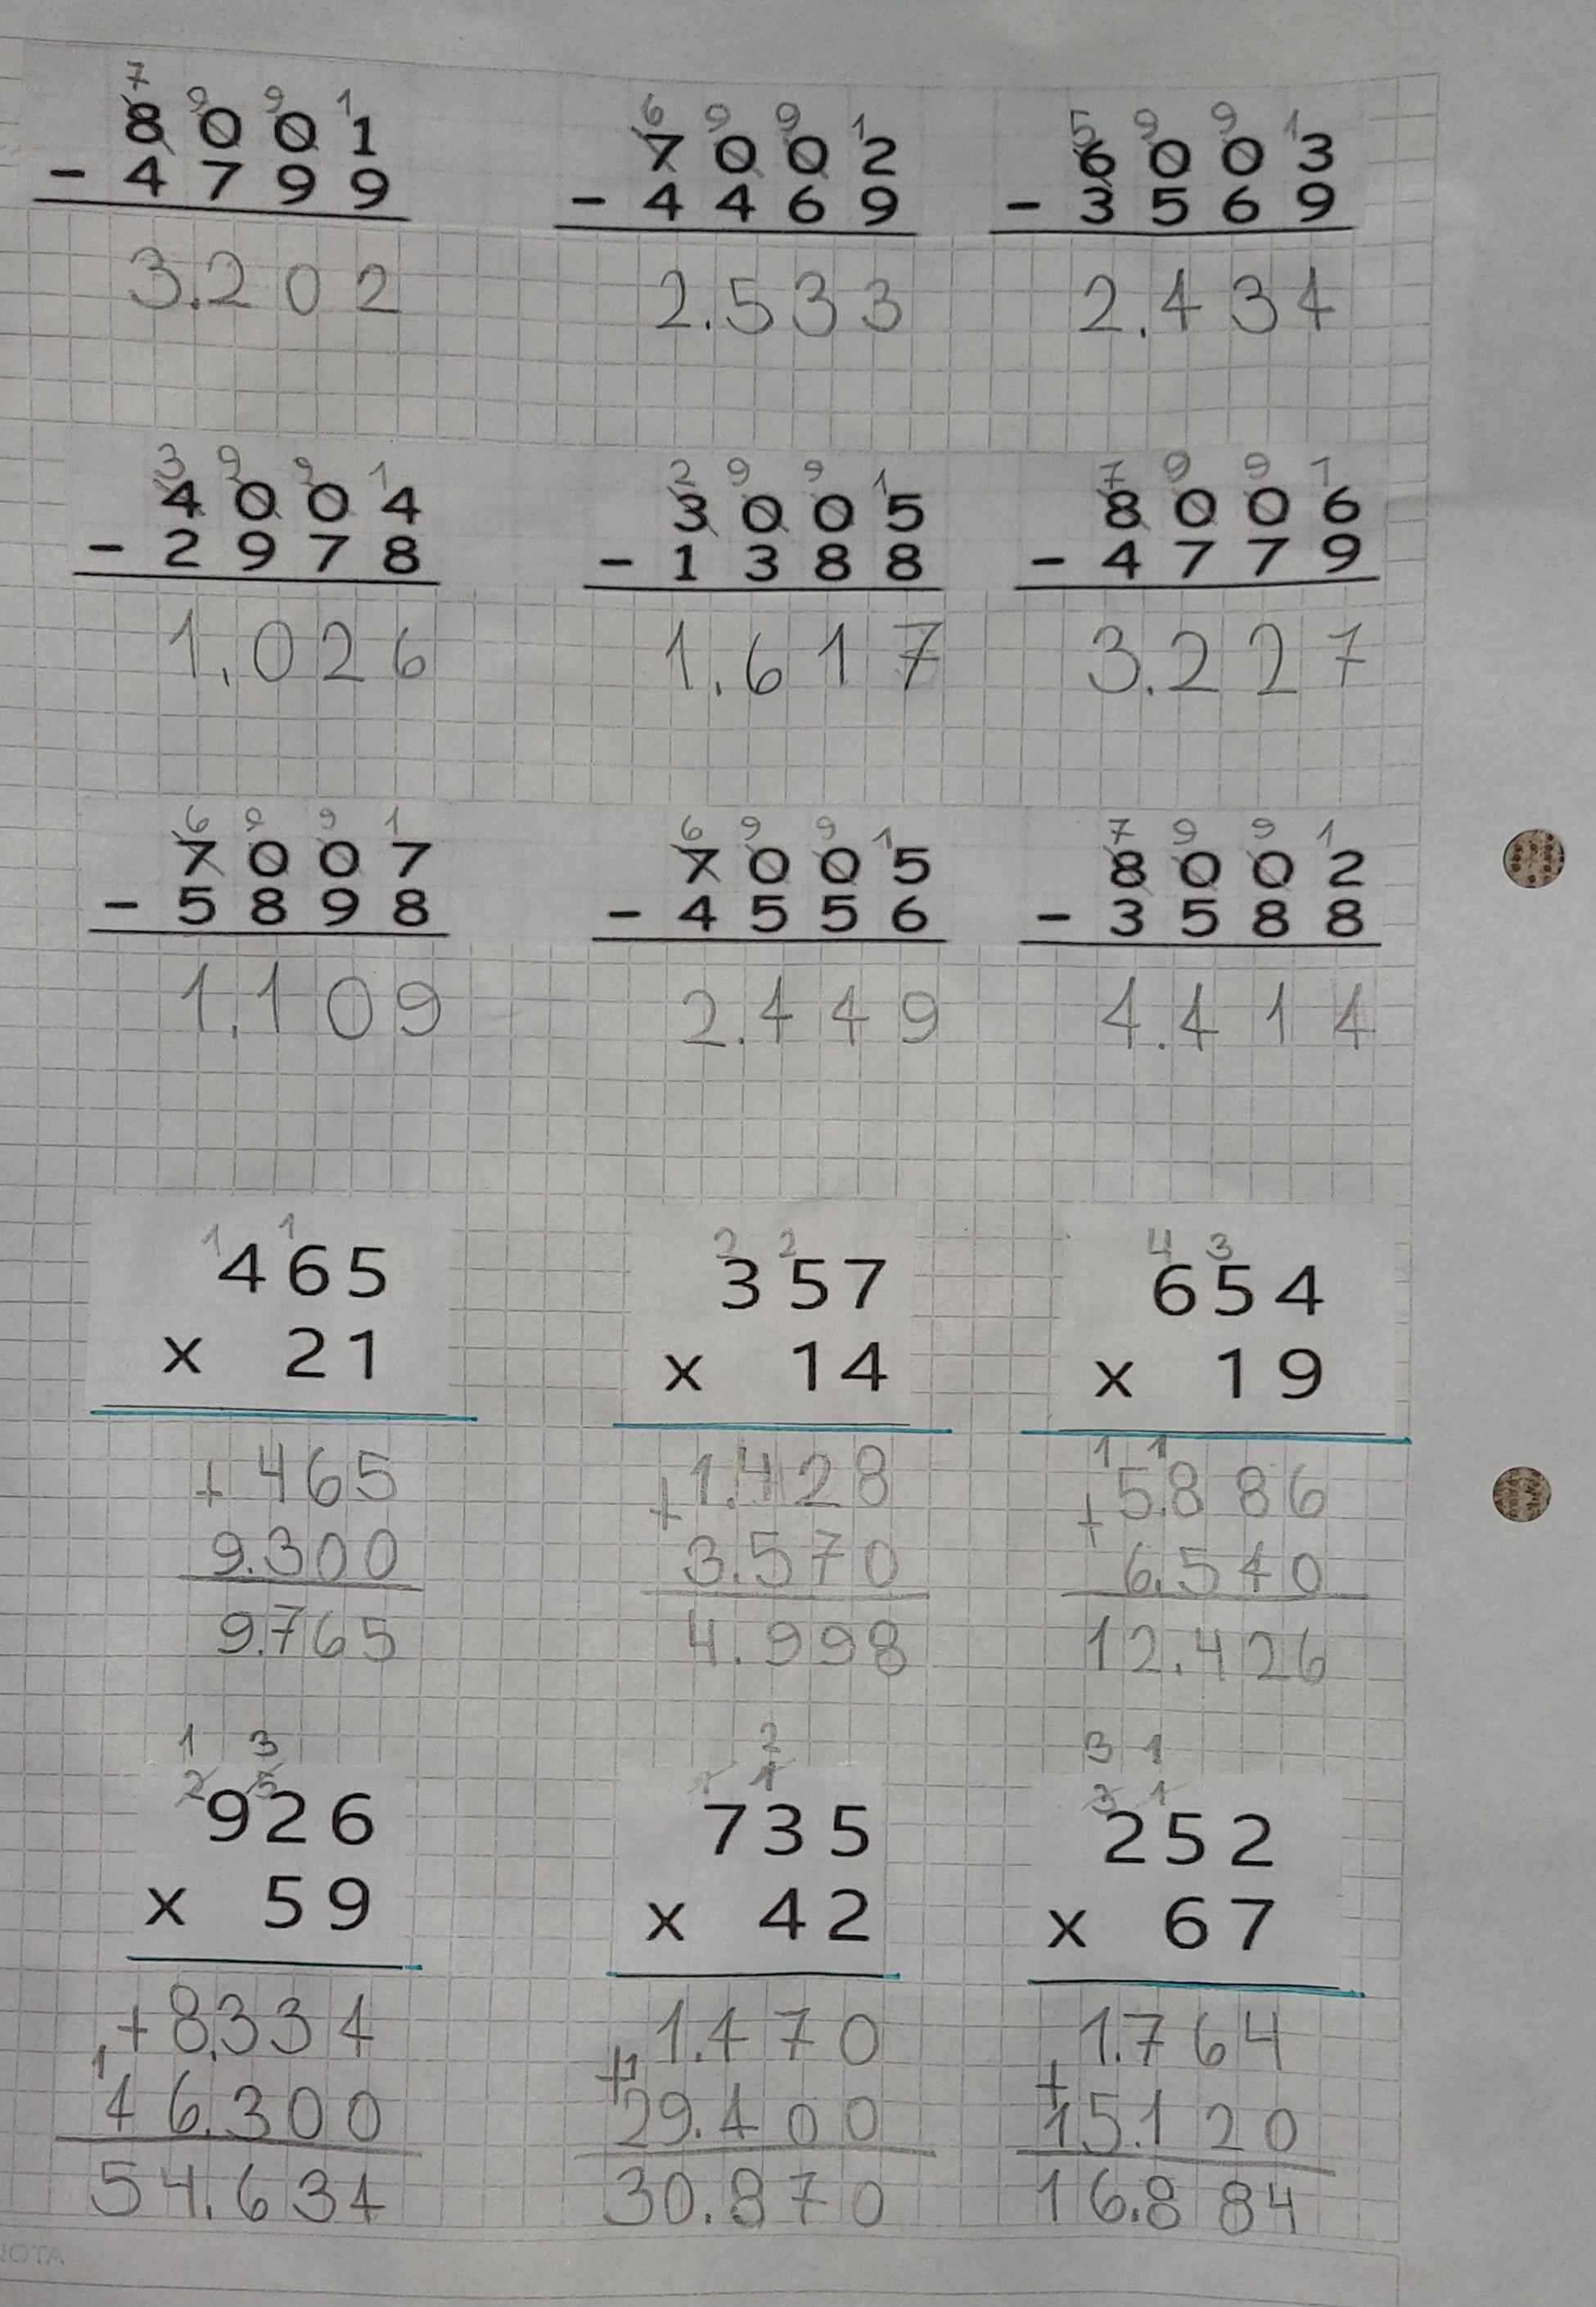 7 9 9 1
8 0 0 1
- 4 7 9 9
3.202
6 9 9 1
7 0 0 2
- 4 4 6 9
2.533
5 9 9 1
6 0 0 3
- 3 5 6 9
2.434
3 9 9 1
4 0 0 4
- 2 9 7 8
1.026
2 9 9 1
3 0 0 5
- 1 3 8 8
1.617
7 9 9 1
8 0 0 6
- 4 7 7 9
3.227
6 9 9 1
7 0 0 7
- 5 8 9 8
1.109
6 9 9 1
7 0 0 5
- 4 5 5 6
2.449
7 9 9 1
8 0 0 2
- 3 5 8 8
4.414
1 1
465
x 21
+ 465
9.300
9.765
2 2
357
x 14
+ 1.428
3.570
4.998
4 3
654
x 19
1 1
+ 5.886
6.540
12.426
1 3
2 5
926
x 59
+ 8.334
1
46.300
54.634
2
1 1
735
x 42
1.470
+ 1
29.400
30.870
3 1
3 1
252
x 67
1.764
+
15.120
16.884
NOTA